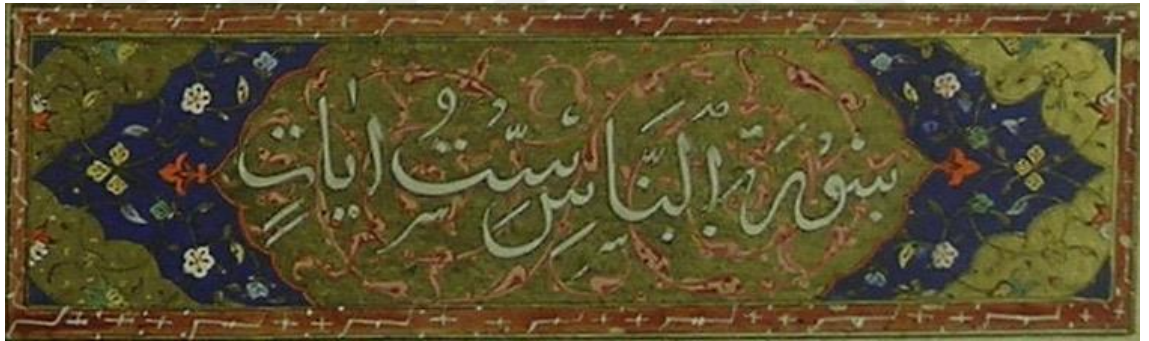 سُورَةُ النَّاسِ سِتُّ اٰيَاتٍ